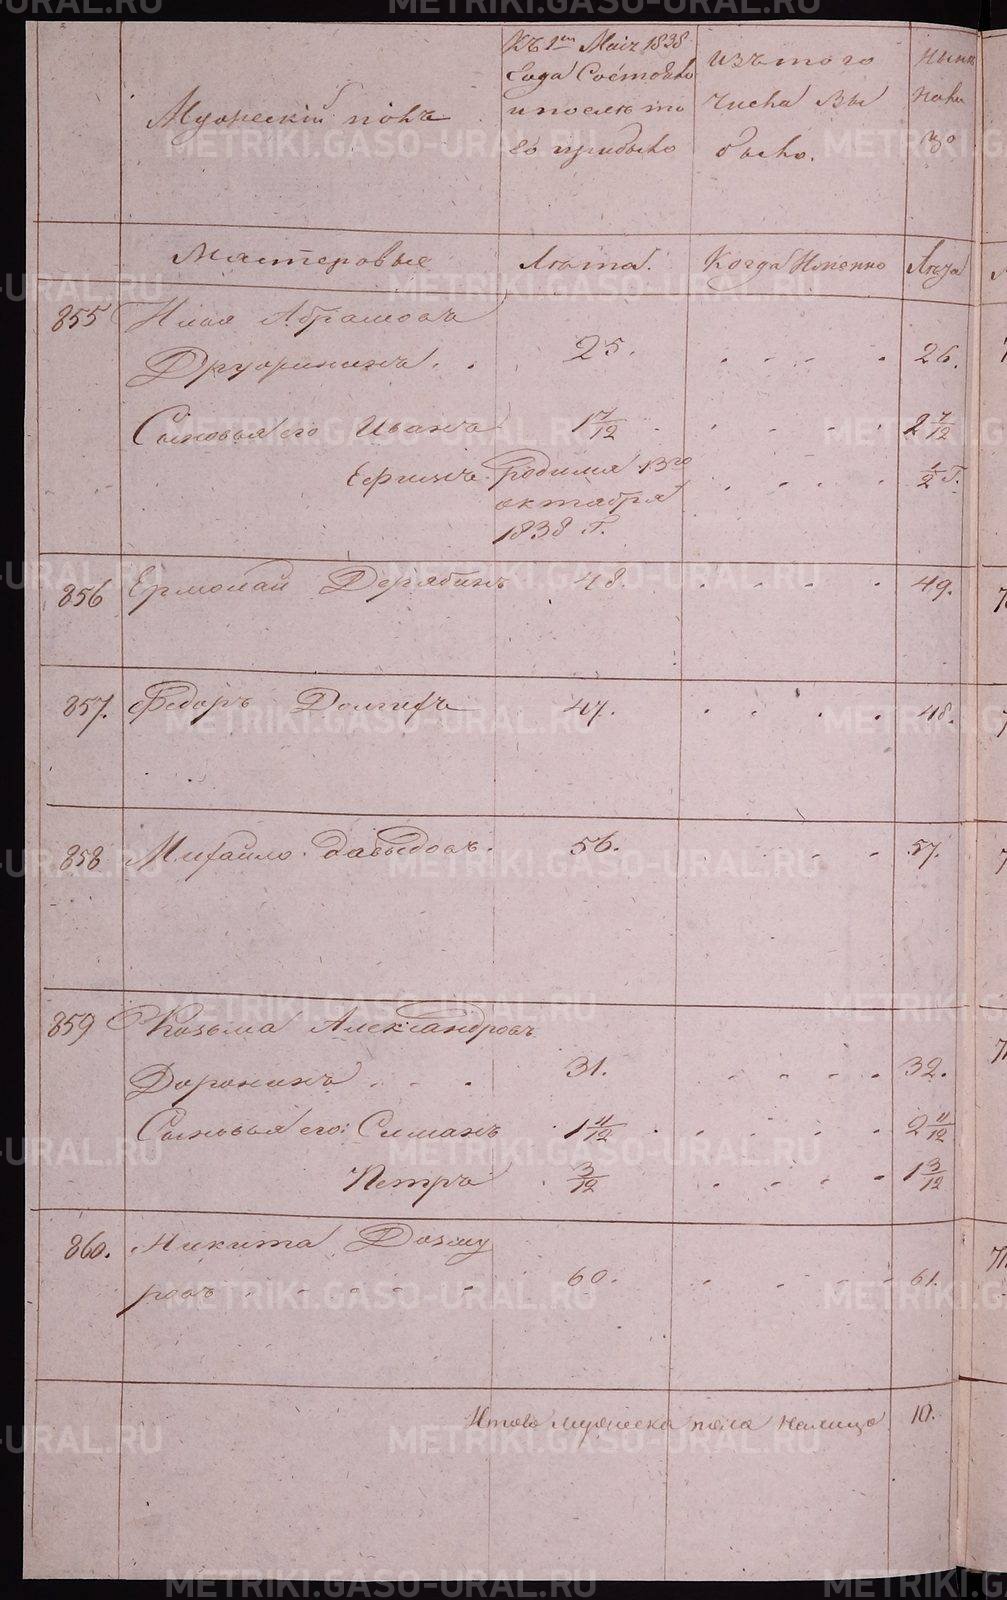 Мужескiй полъ
Къ 1му Маiя 1838
Года Состояло
и после то
го прибыло
Изъ того
числа Вы
было.
Ныне
нали
Мастеровые
Лѣта.
Когда Именно
Лѣта
855 Илья Абрамовъ
Дружининъ . . 25. . . . . 26.
Сыновья его Иванъ 1 7/12 . . . . . 2 7/12
Ефимъ родился 13го . . . . 1/2 г.
октября
1838 г.
856 Ермолай Дерябинъ 48. . . . . 49.
857. Федоръ Долгихъ 47. . . . . 48.
858 Михайло Давыдовъ. 56. . . . . 57.
859 Козьма Александровъ
Доронинъ . . . 31. . . . . 32.
Сыновья его: Симанъ 1 11/12 . . . . . 2 11/12
Петръ 3/12 . . . . 1 3/12
860. Никита Дозму
ровъ . . . . . . 60. . . . . 61.
Итого мужеска пола налицо 10.
METRIKI.GASO-URAL.RU